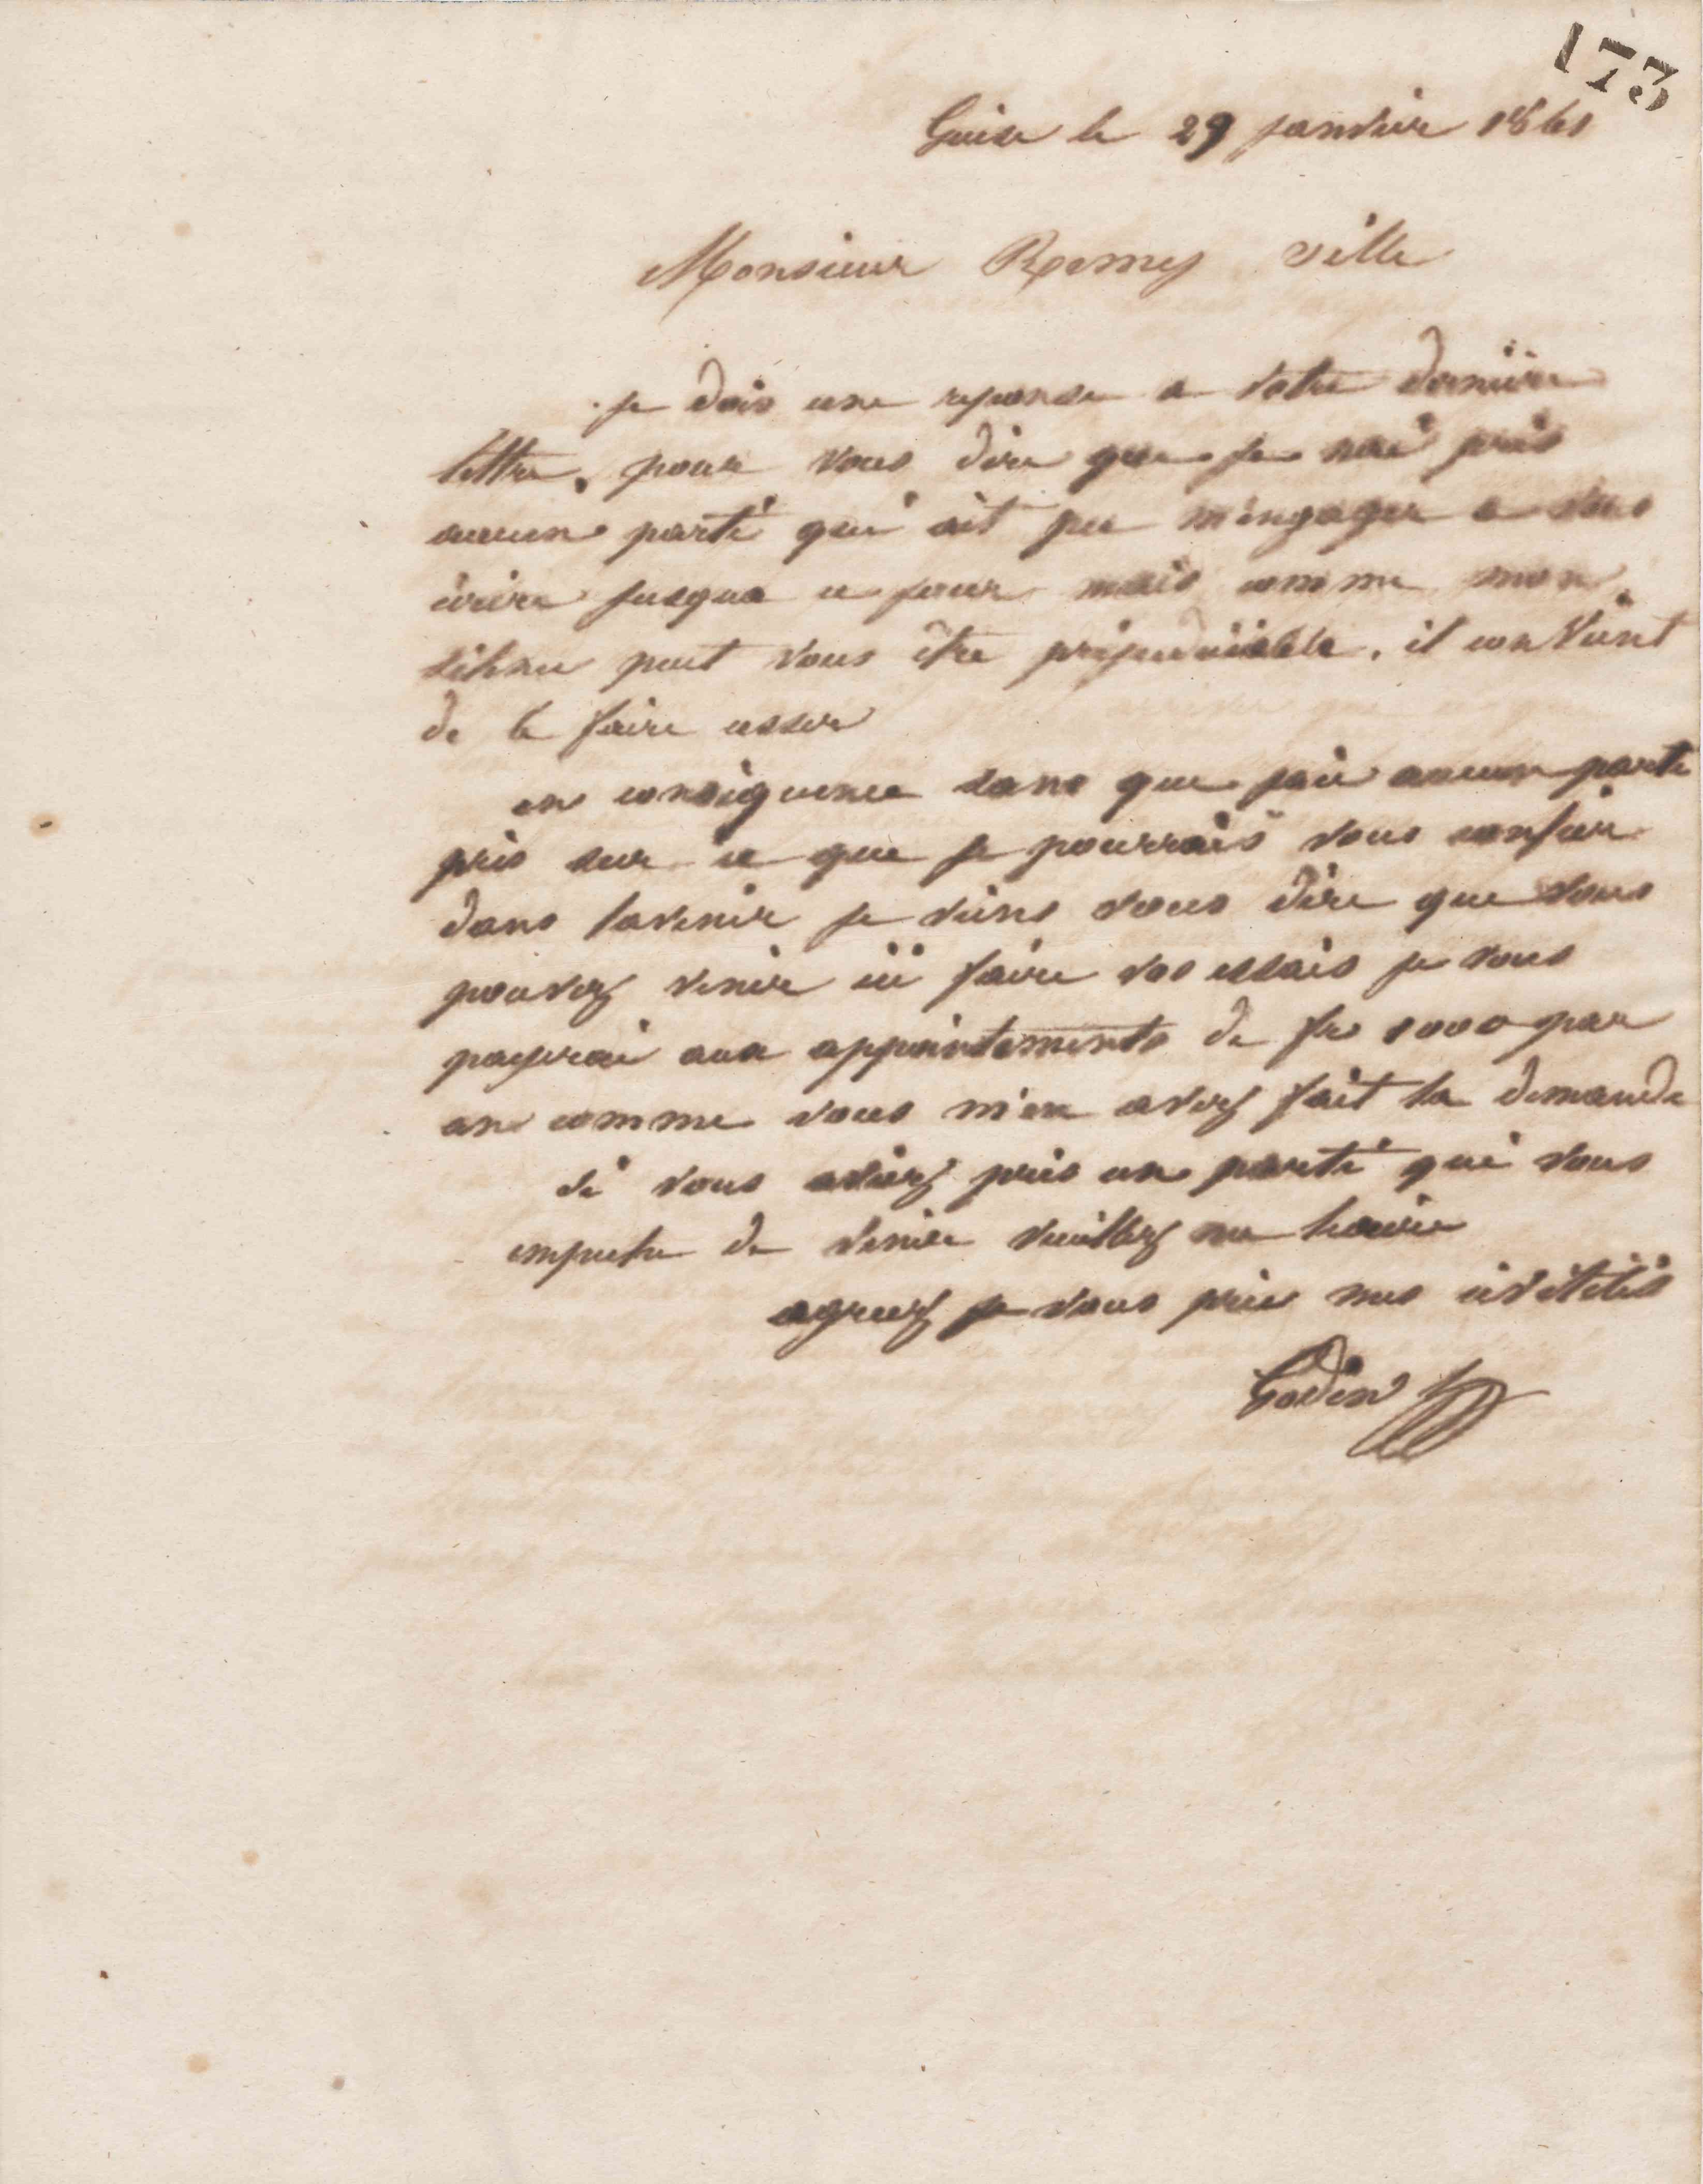 173
Guise le 29 janvier 1861
Monsieur Remy ville
je dois une reponse a votre dernière
lettre, pour vous dire que je nai pris
aucun parti qui ait pu m'engager a vous
écrire jusqua ce jour mais comme mon
silence peut vous être préjudiciable, il convient
de le faire cesser
en conséquence sans que jaie aucun parti
pris sur ce que je pourrais vous confier
dans lavenir je viens vous dire que vous
pouvez venir ici faire vos essais je vous
payerai aux appointements de fr 1000 par
an comme vous m'en avez fait la demande
si vous aviez pris un parti qui vous
empeche de venir veuillez me
agreez je vous prie mes civilités
Godin